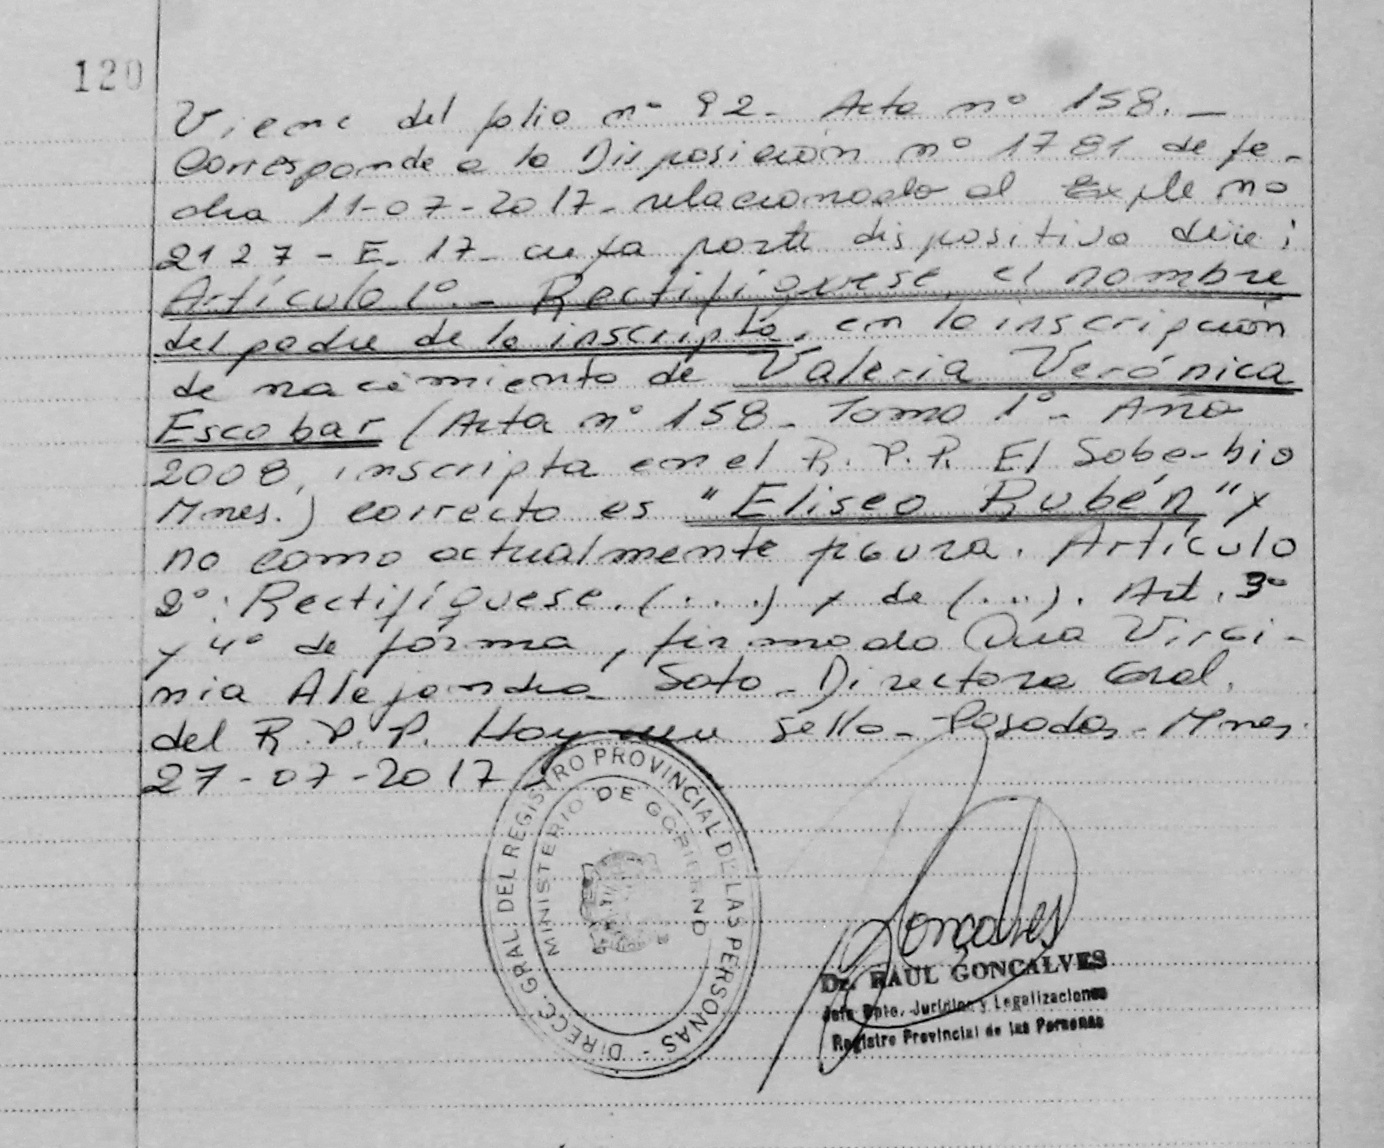 120
Viene del folio nº 92. Acta nº 158. —
Corresponde a la Disposición nº 1781 de fe-
cha 11-07-2017. relacionado al Expte nº
2127 - E. 17. cuya parte dispositiva dice:
Artículo 1º.- Rectifíquese, el nombre
del padre de la inscripta, en la inscripción
de nacimiento de Valeria Verónica
Escobar (Acta nº 158. Tomo 1º. Año
2008, inscripta en el R.P.P. El Soberbio
Mnes.) correcto es "Eliseo Rubén" y
no como actualmente figura. Artículo
2º: Rectifíquese. (...) y de (...). Art. 3º
y 4º de forma, firmado Dra Virgi-
nia Alejandra Soto. Directora Gral.
del R.P.P. Hay un sello. Posadas. Mnes.
27-07-2017
DIRECC. GRAL. DEL REGISTRO PROVINCIAL DE LAS PERSONAS -
MINISTERIO DE GOBIERNO
Goncalves
Dr. RAUL GONCALVES
Jefe Dpto. Jurídico y Legalizaciones
Registro Provincial de las Personas